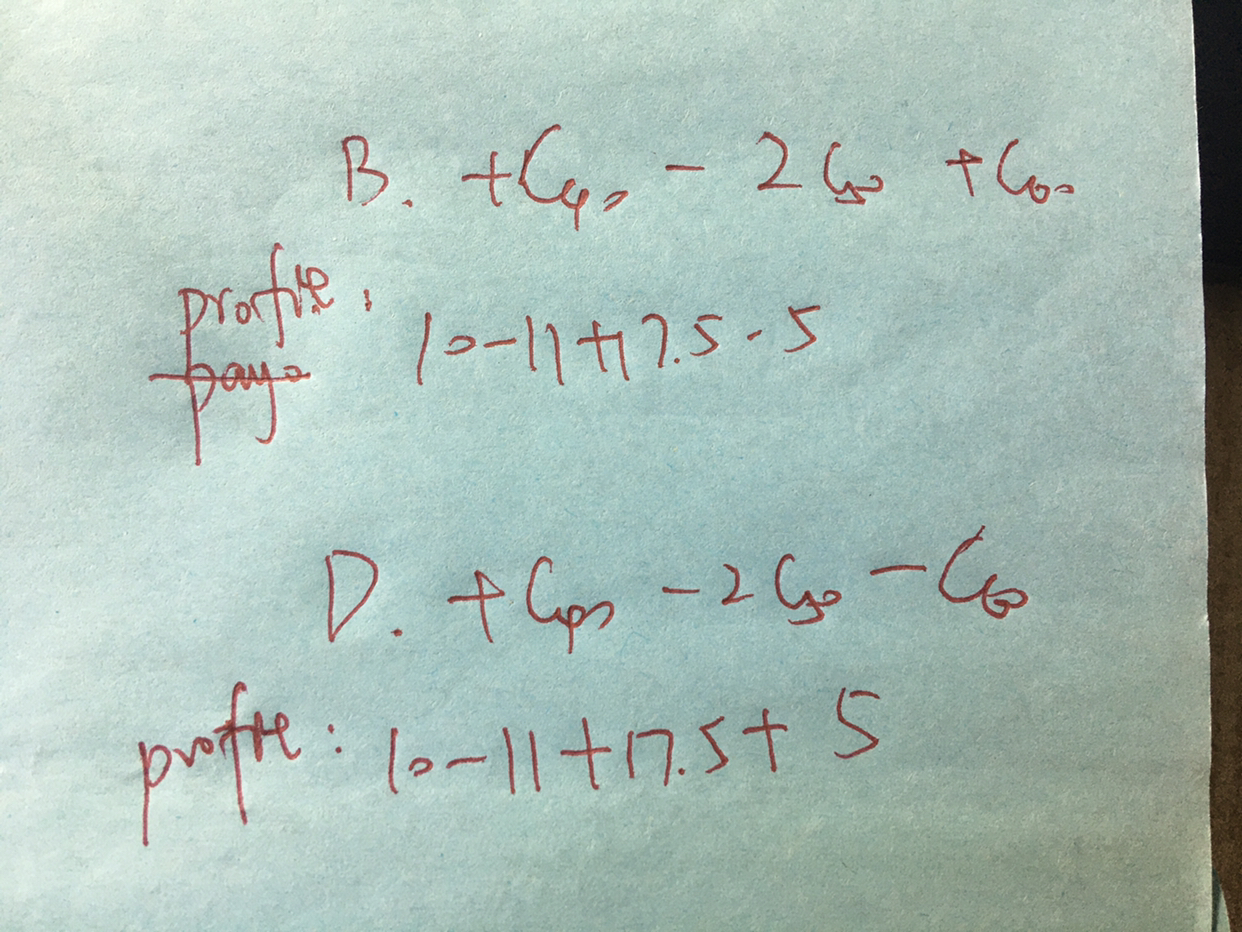 B. +C40 - 2C50 +C60
profite:
10-11+17.5-5
D. +C40 -2C50 -C60
profite: 10-11+17.5+5